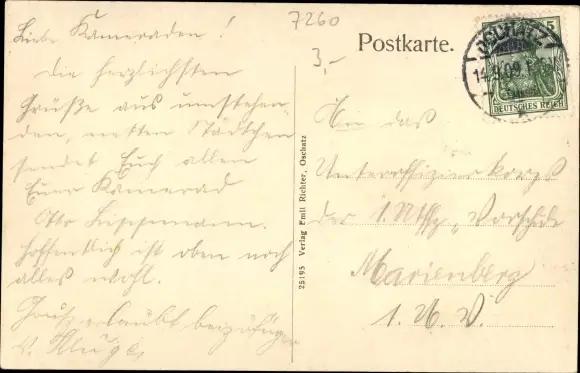 7260
3,-
Postkarte.
OSCHATZ
14.9.09
5
DEUTSCHES REICH
Liebe Kameraden!
Die herzlichsten
Grüße aus umstehen-
den, netten Städtchen
sendet Euch allen
Euer Kamerad
Otto Lippmann.
Hoffentlich ist oben noch
alles wohl.
Gruß erlaubt beizufügen
v. Kluge,
25195 Verlag Emil Richter, Oschatz
An das
Unteroffizierkorps
der 1. Vorschule
Marienberg
i. U. V.